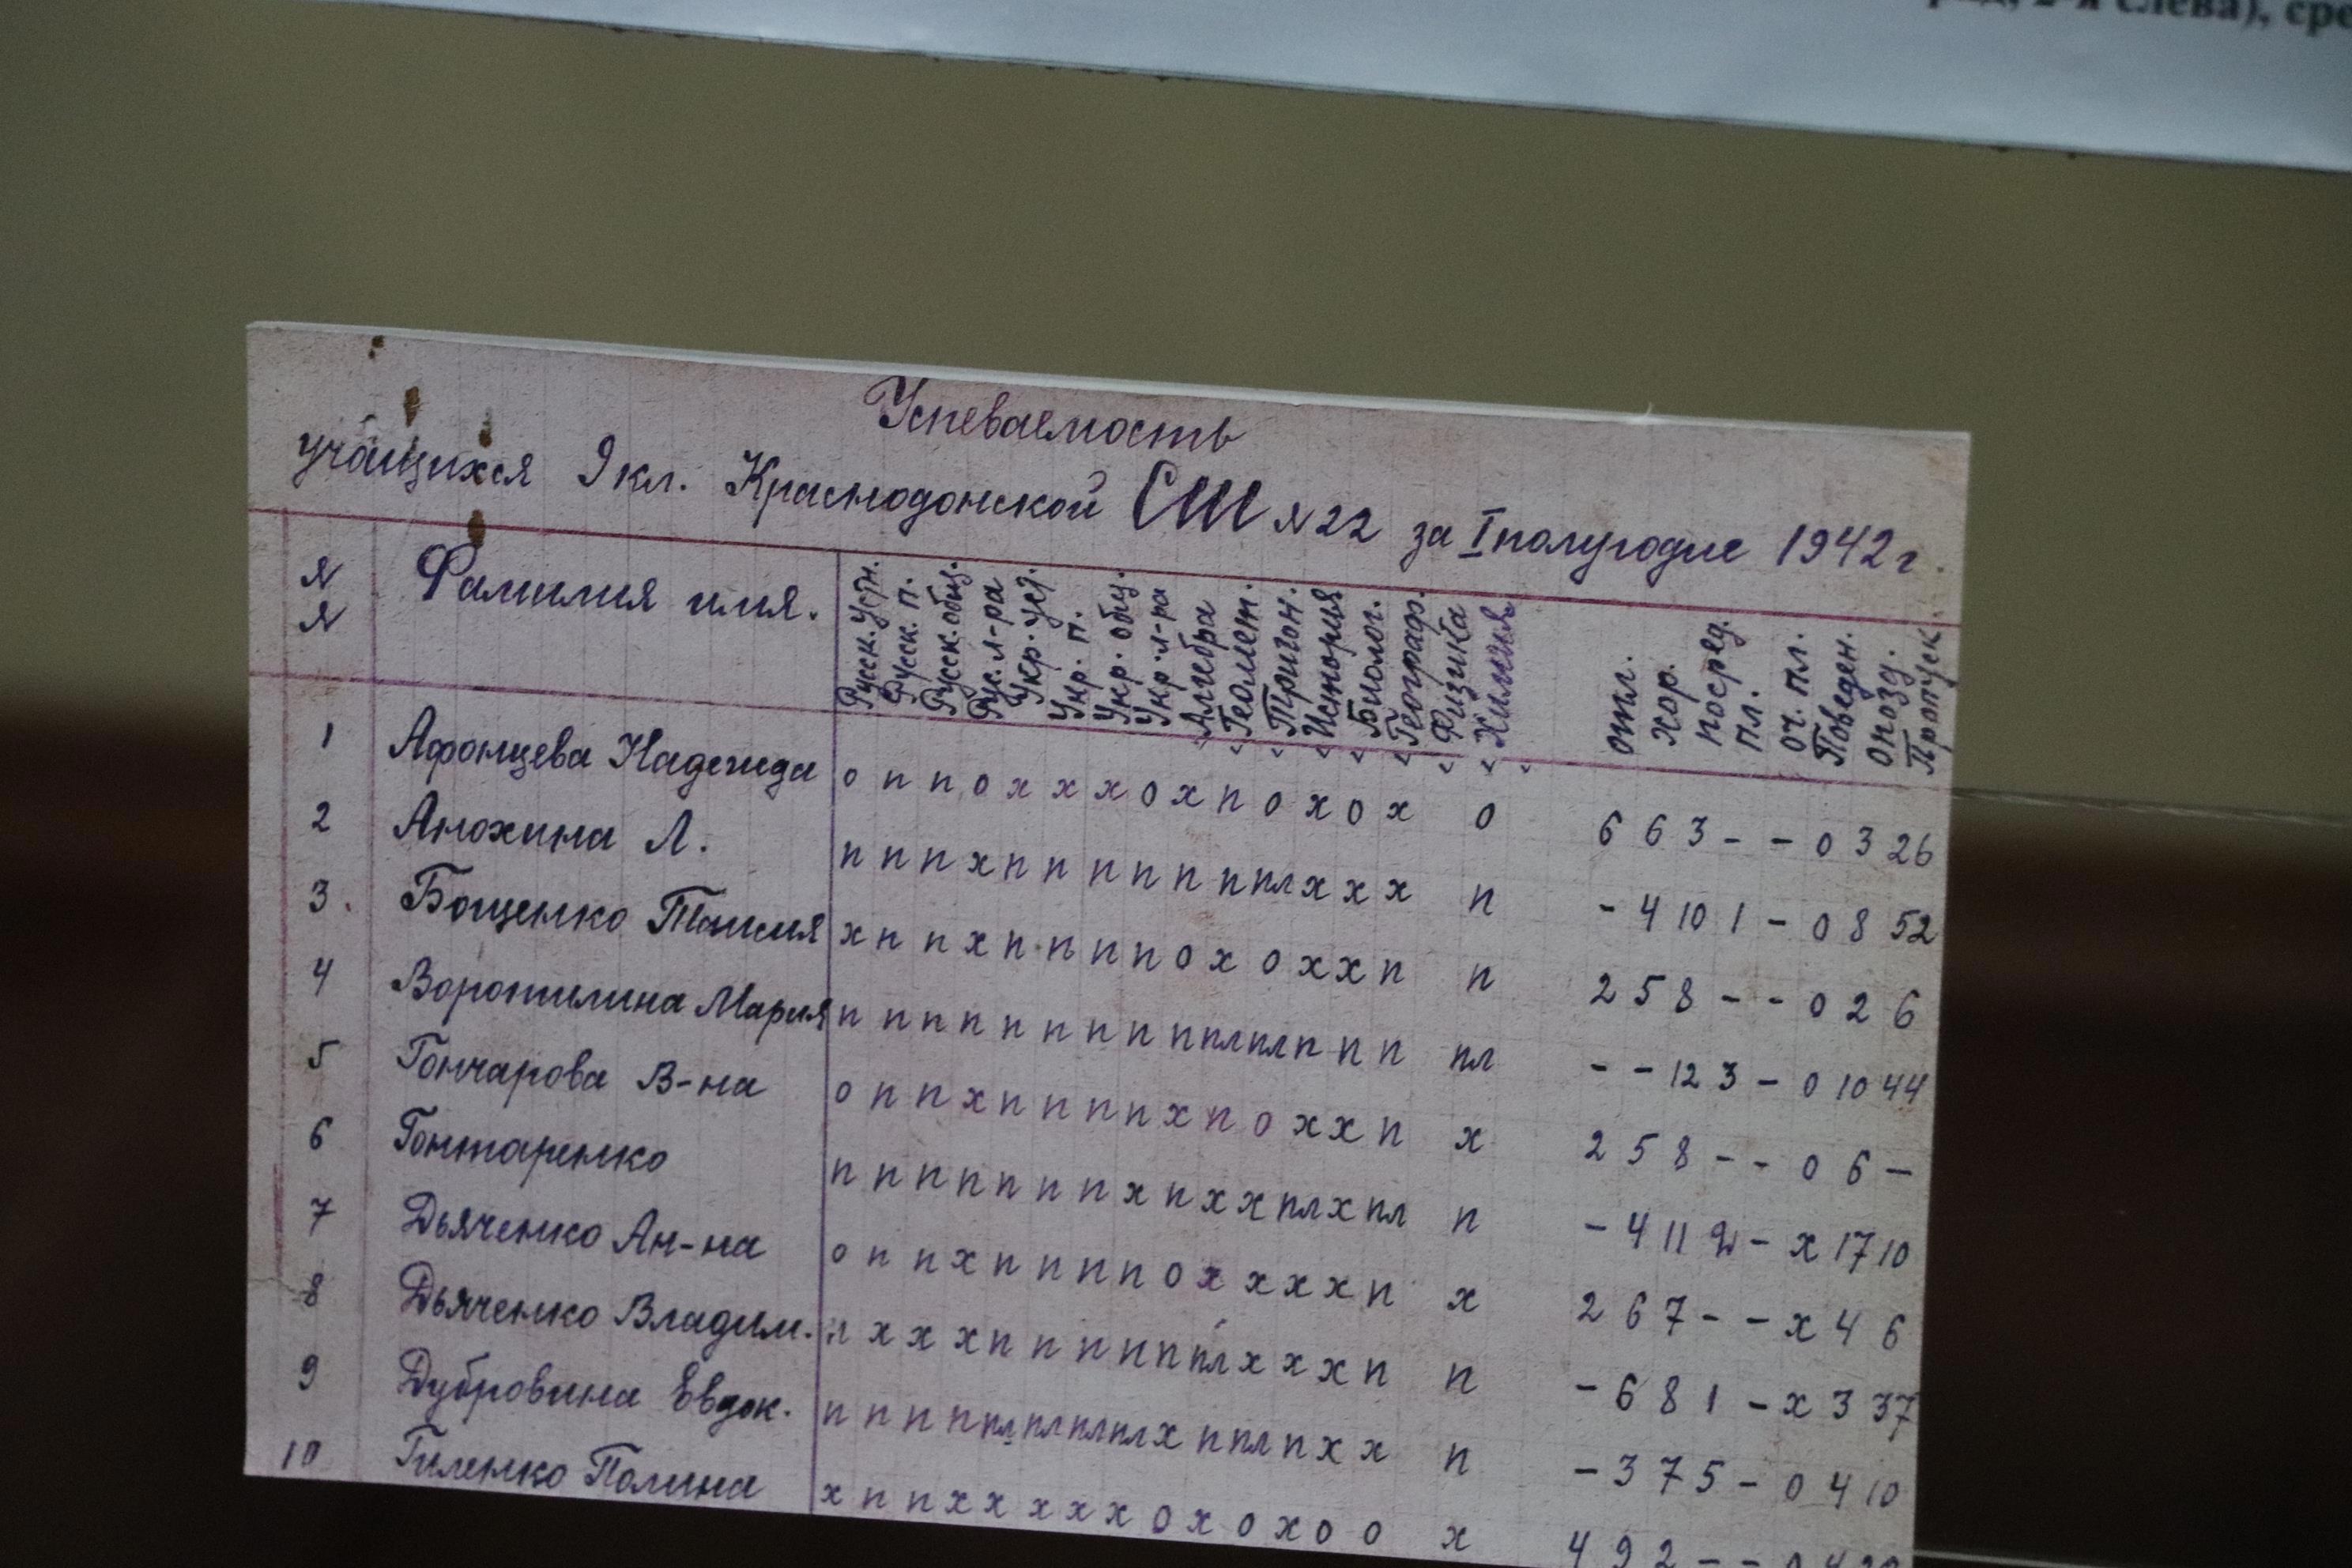 2-я слева),
Успеваемость
учащихся 9 кл. Краснодонской СШ № 22 за I полугодие 1942 г.
№ № Фамилия имя. Русск. устн. Русск. п. Русск. общ. Рус. л-ра Укр. уст. Укр. п. Укр. общ. Укр. л-ра Алгебра Геомет. Тригон. История Биолог. Географ. Физика Химия отл. хор. посред. пл. оч. пл. Поведен. опозд. Пропуск.
1 Афонцева Надежда о п п о х х х о х п о х о х о 6 6 3 - - о 3 26
2 Анохина Л. п п п х п п п п п п пл х х х п - 4 10 1 - о 8 52
3. Бощенко Таисия х п п х п п п п о х о х х п п 2 5 8 - - о 2 6
4 Воротилина Мария п п п п п п п п п пл пл п п п пл - - 12 3 - о 10 44
5 Гончарова В-на о п п х п п п п х п о х х п х 2 5 8 - - о 6 -
6 Гонтаренко п п п п п п п х п х х пл х пл п - 4 11 - х 17 10
7 Дьяченко Ан-на о п п х п п п п о х х х х п х 2 6 7 - - х 4 6
8 Дьяченко Владим. х х х п п п п п пл х х х п п - 6 8 1 - х 3 37
9 Дубровина Евдок. п п п п пл пл пл пл х п пл п х х п - 3 7 5 - о 4 10
10 Гиленко Полина х п п х х х х х о х о х о о х 4 9 2 - - о